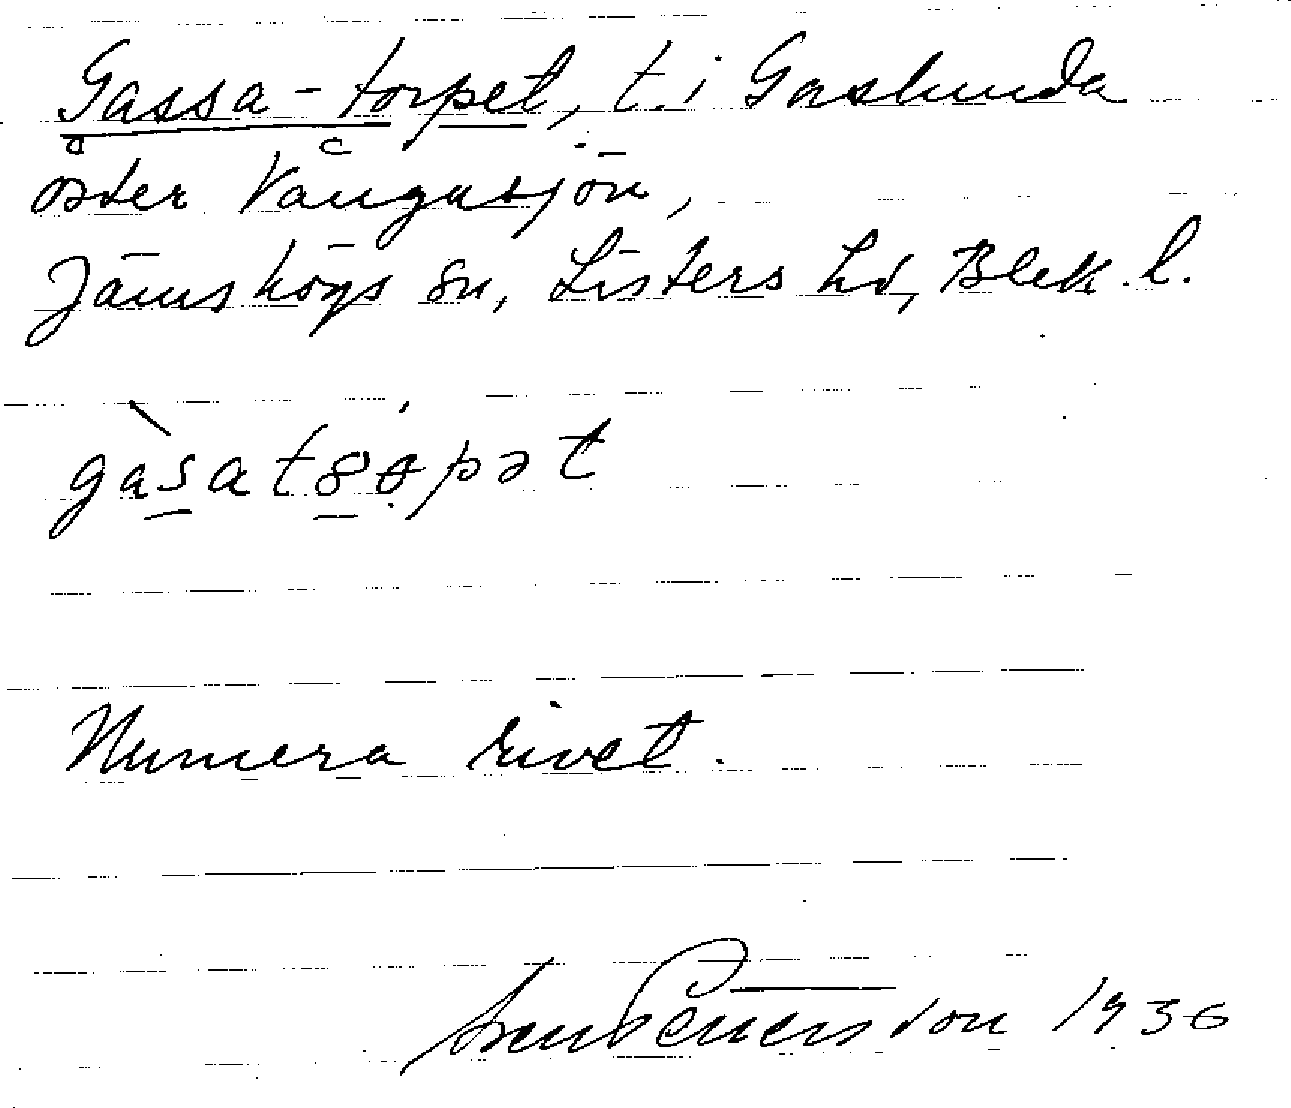 Gassa-torpet, t. i Gaslunda
öster Vångasjön,
Jämshögs sn, Listers hd, Blek. l.
Numera rivet.
Sven Petersson 1936